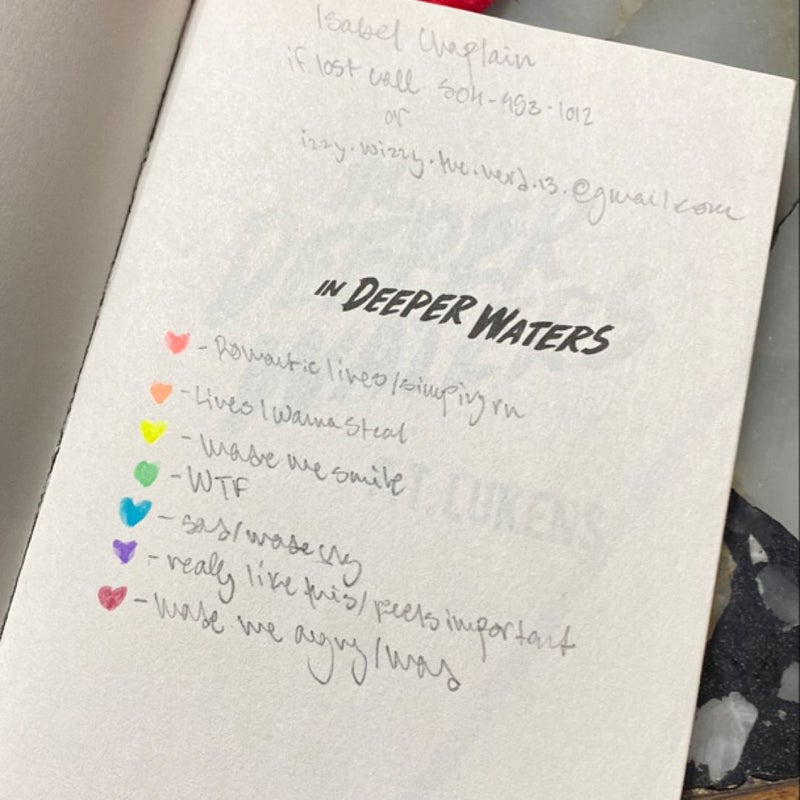 Isabel Chaplain
if lost call 504-493-1012
or
izzy.wizzy.the.nerd.13.@gmail.com
IN DEEPER WATERS
- Romantic lines/simping rn
- Lines I wanna steal
- made me smile
- WTF
- sad/made cry
- really like this/feels important
- made me angry/mad
F.T. LUKENS